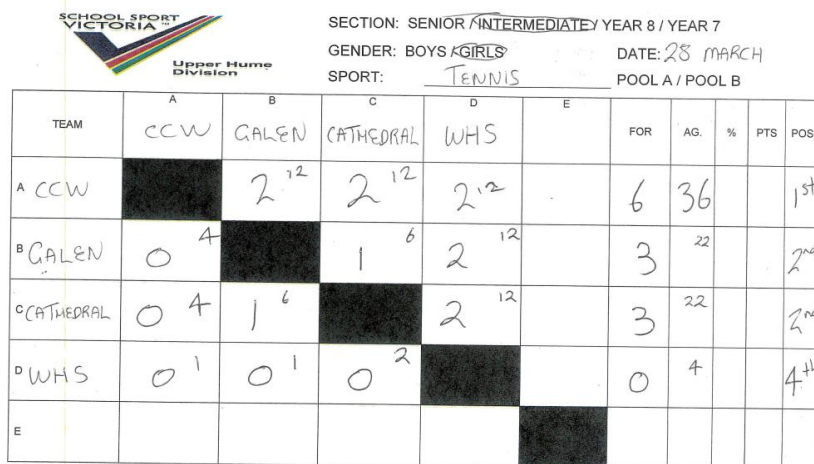 SCHOOL SPORT
VICTORIA ™
Upper Hume
Division
SECTION: SENIOR / INTERMEDIATE / YEAR 8 / YEAR 7
GENDER: BOYS / GIRLS
DATE: 28 MARCH
SPORT: TENNIS
POOL A / POOL B
A B C D E
TEAM CCW GALEN CATHEDRAL WHS FOR AG. % PTS POS
A CCW 2 12 2 12 2 12 6 36 1st
B GALEN 0 4 1 6 2 12 3 22 2nd
C CATHEDRAL 0 4 1 6 2 12 3 22 2nd
D WHS 0 1 0 1 0 2 0 4 4th
E